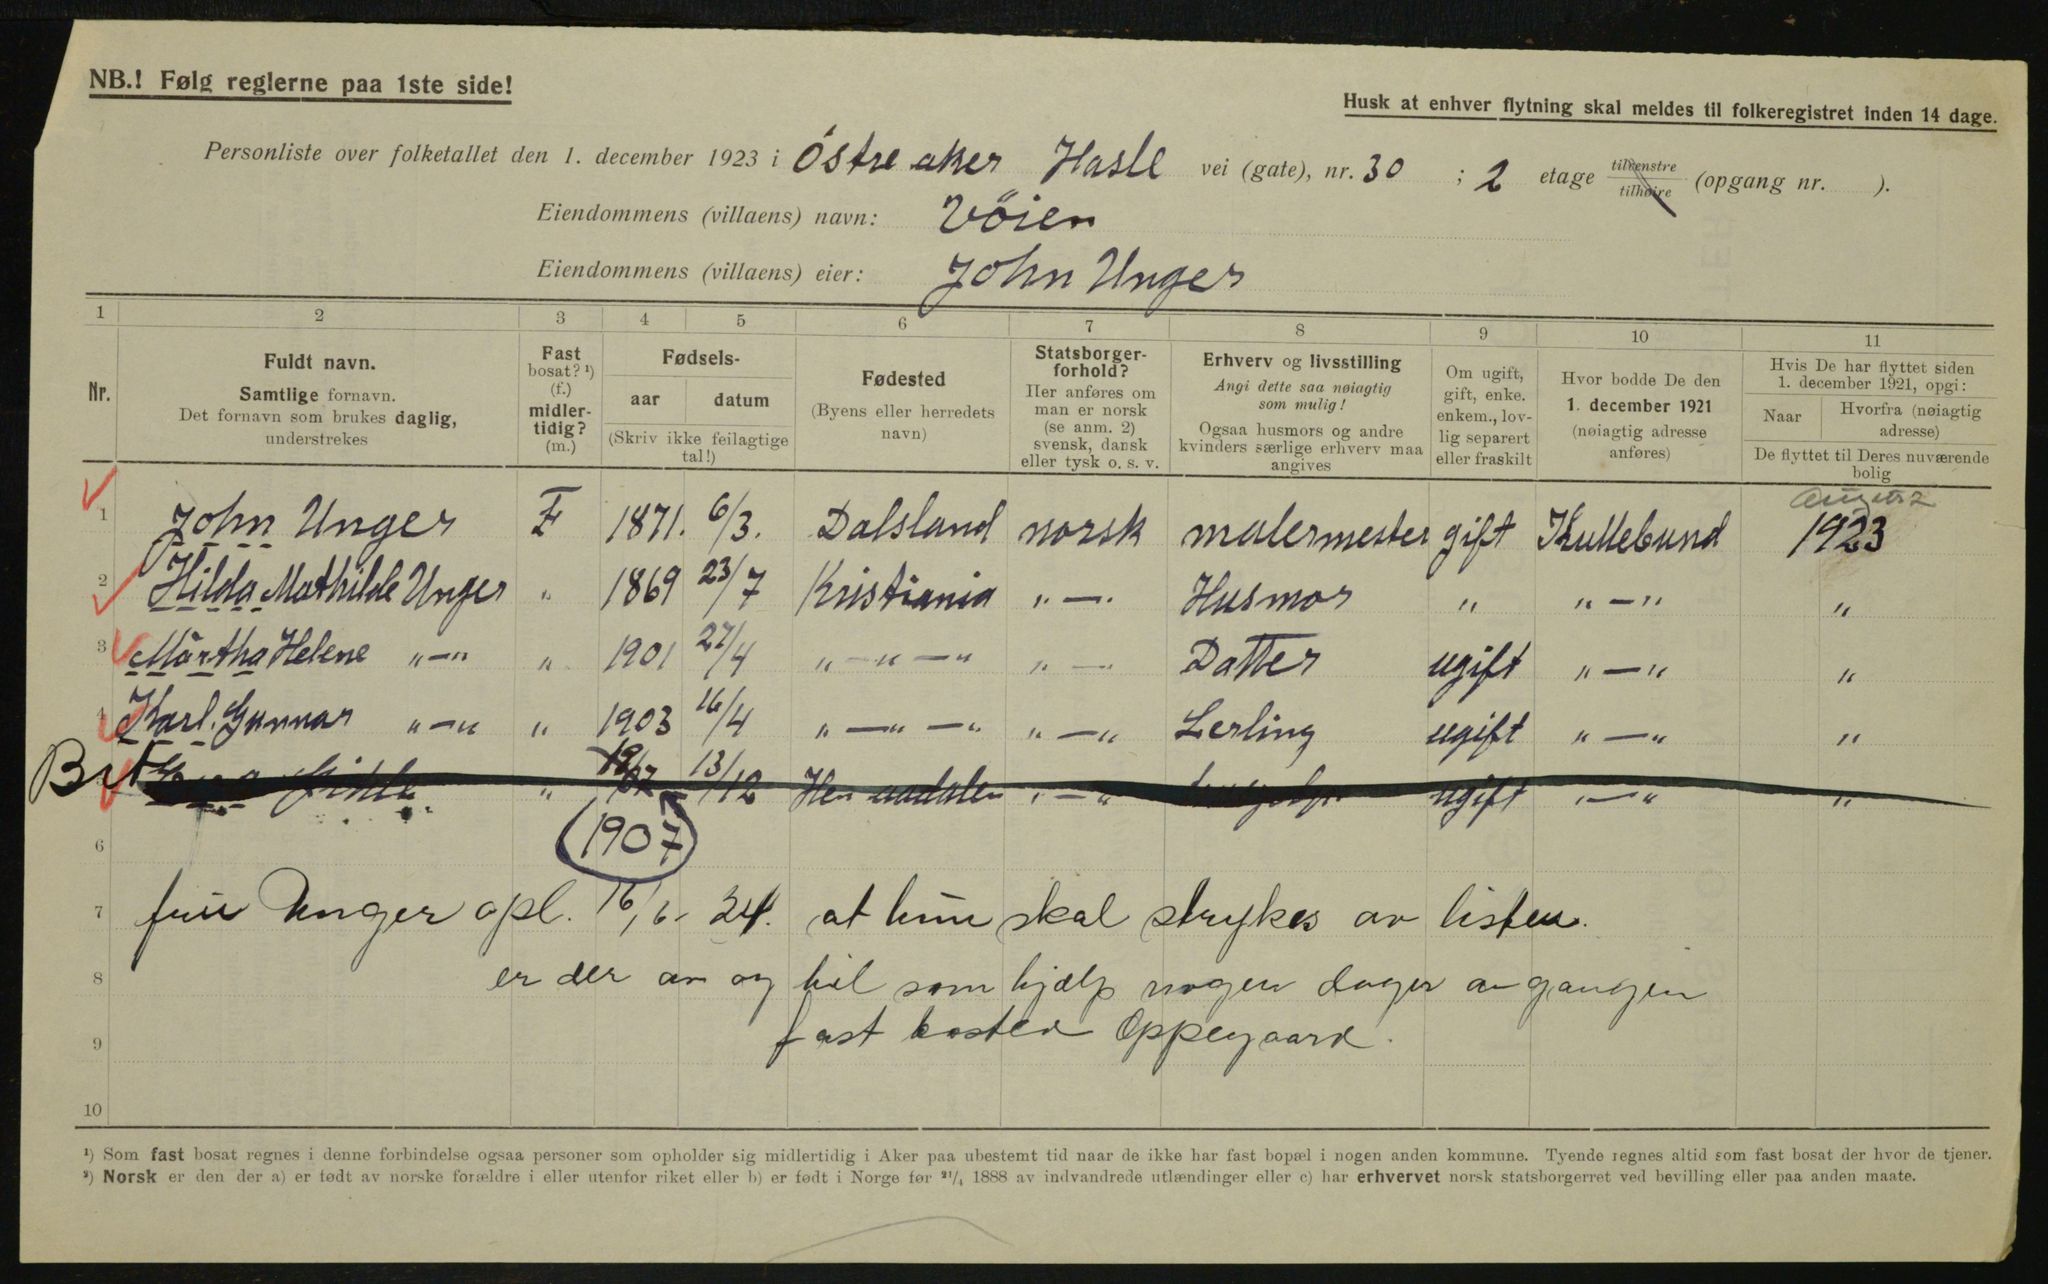 NB.! Følg reglerne paa 1ste side!
Husk at enhver flytning skal meldes til folkeregistret inden 14 dage.
Personliste over folketallet den 1. december 1923 i Östre aker Hasle vei (gate), nr. 30 ; 2 etage tilvenstre tilhøire (opgang nr. ).
Eiendommens (villaens) navn: Vöien
Eiendommens (villaens) eier: John Unger
1 2 3 4 5 6 7 8 9 10 11
Nr.
Fuldt navn.
Samtlige fornavn.
Det fornavn som brukes daglig,
understrekes
Fast
bosat? ¹)
(f.)
midler-
tidig?
(m.)
Fødsels-
aar datum
(Skriv ikke feilagtige
tal!)
Fødested
(Byens eller herredets
navn)
Statsborger-
forhold?
Her anføres om
man er norsk
(se anm. 2)
svensk, dansk
eller tysk o. s. v.
Erhverv og livsstilling
Angi dette saa nøiagtig
som mulig!
Ogsaa husmors og andre
kvinders særlige erhverv maa
angives
Om ugift,
gift, enke.
enkem., lov-
lig separert
eller fraskilt
Hvor bodde De den
1. december 1921
(nøiagtig adresse
anføres)
Hvis De har flyttet siden
1. december 1921, opgi:
Naar Hvorfra (nøiagtig
adresse)
De flyttet til Deres nuværende
bolig
August
1 John Unger F 1871. 6/3. Dalsland norsk malermester gift Kullebund 1923
2 Hilda Mathilde Unger " 1869 23/7 Kristiania " — " Husmor " " — " "
3 Märtha Helene " — " " 1901 27/4 " — " — " " — " Datter ugift " — " "
4 Karl. Gunnar " — " " 1903 16/4 " — " — " " — " Lerling ugift " — " "
5 " 13/12 " — " ugift " — " "
1907
6
7 fru Unger opl. 16/6- 24. at hun skal strykes av listen.
8 er der av og til som hjælp nogen dager av gangen
9 fast bosted Oppegaard.
10
¹) Som fast bosat regnes i denne forbindelse ogsaa personer som opholder sig midlertidig i Aker paa ubestemt tid naar de ikke har fast bopæl i nogen anden kommune. Tyende regnes altid som fast bosat der hvor de tjener.
²) Norsk er den der a) er født av norske forældre i eller utenfor riket eller b) er født i Norge før ²¹/₄ 1888 av indvandrede utlændinger eller c) har erhvervet norsk statsborgerret ved bevilling eller paa anden maate.